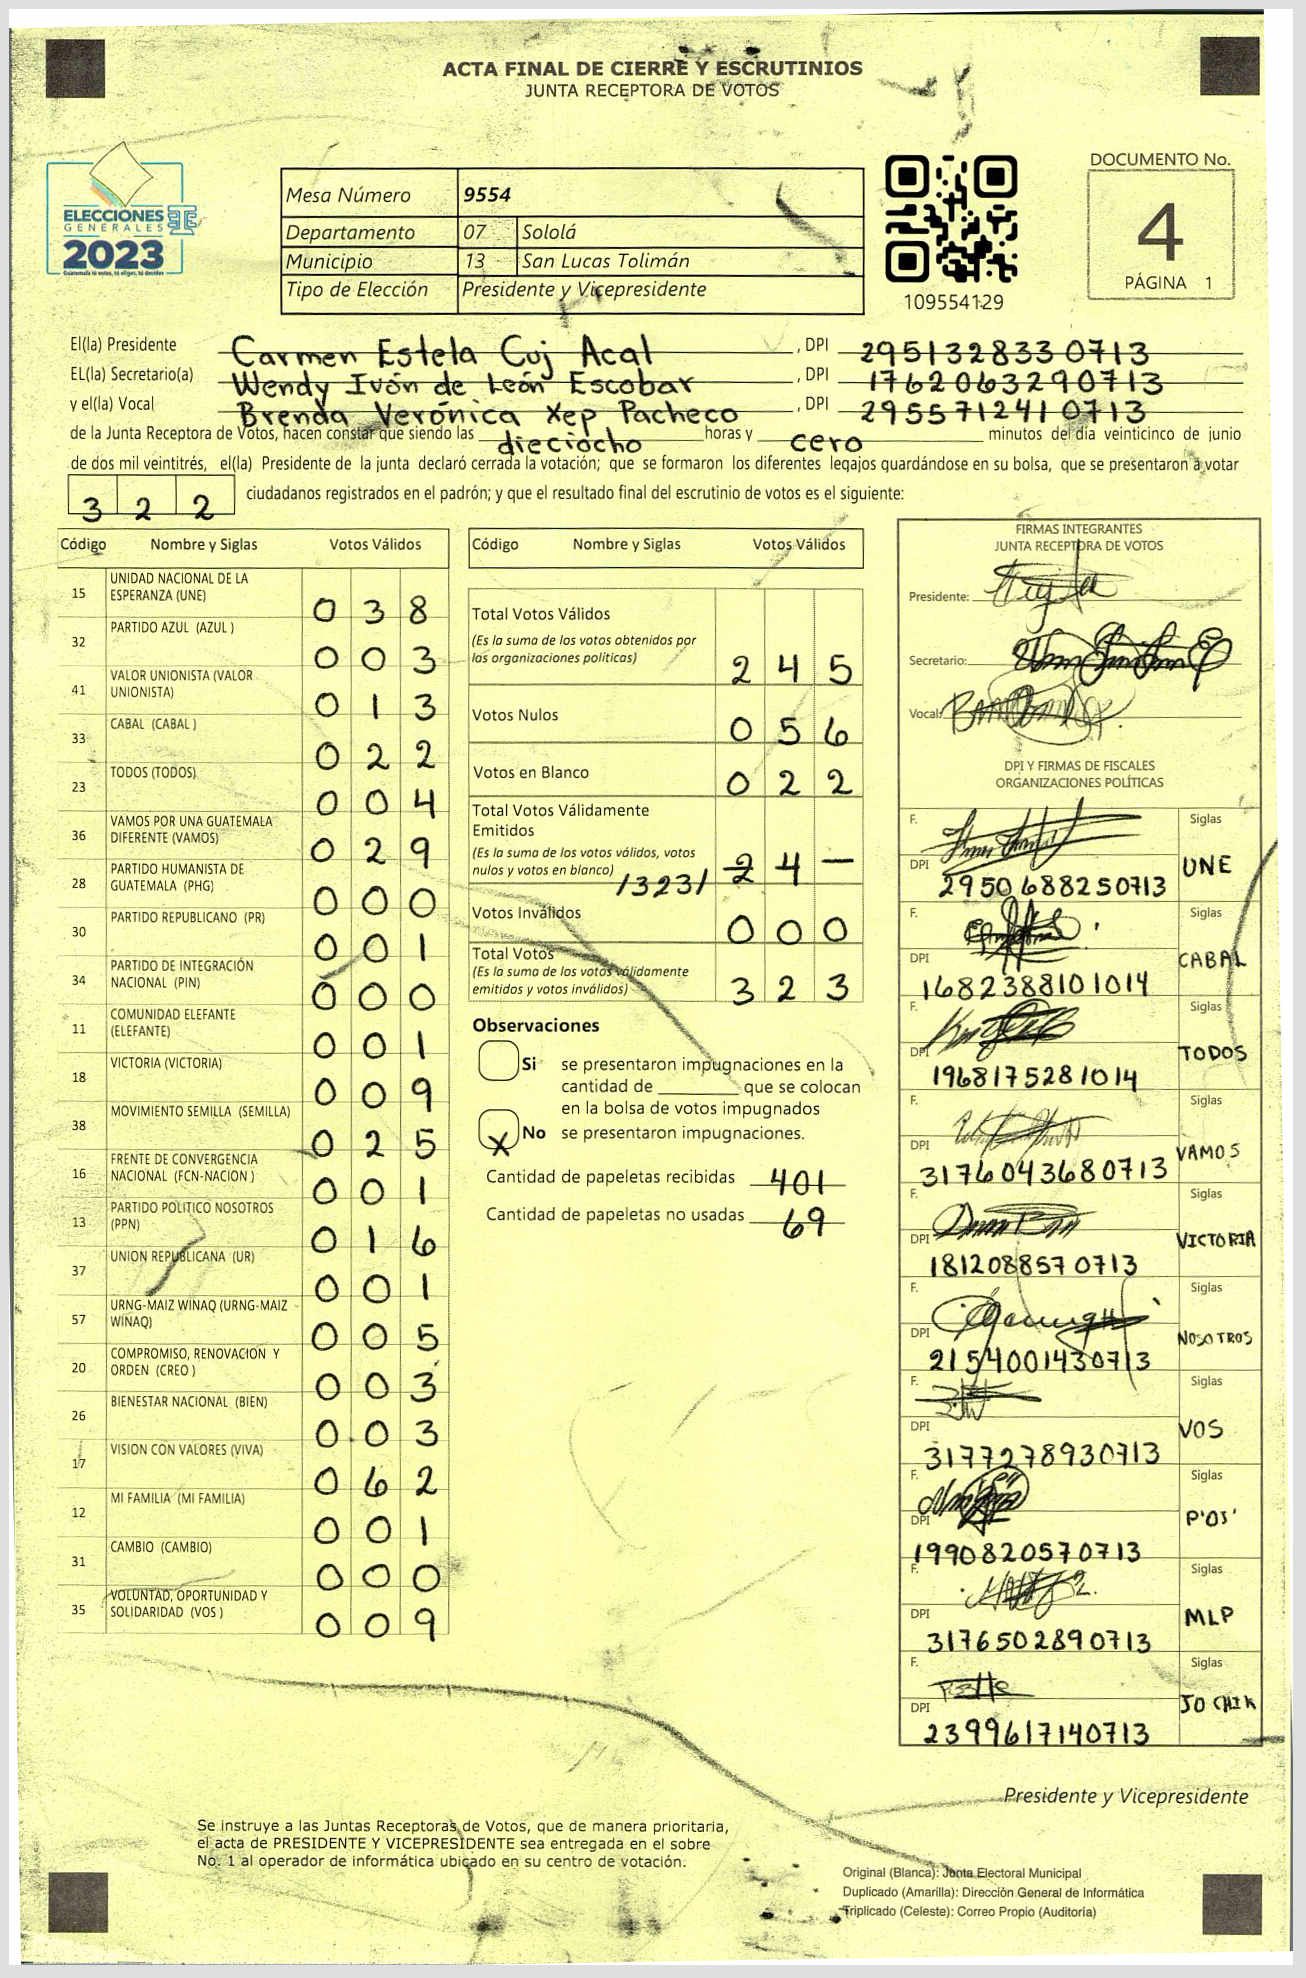 ACTA FINAL DE CIERRE Y ESCRUTINIOS
JUNTA RECEPTORA DE VOTOS
ELECCIONES
GENERALES
2023
Guatemala tú votas, tú eliges, tú decides
Mesa Número 9554
Departamento 07 Sololá
Municipio 13 San Lucas Tolimán
Tipo de Elección Presidente y Vicepresidente
109554129
DOCUMENTO No.
4
PÁGINA 1
El(la) Presidente Carmen Estela Cuj Acal, DPI 2951328330713
EL(la) Secretario(a) Wendy Ivón de León Escobar, DPI 1762063290713
y el(la) Vocal Brenda Verónica Xep Pacheco, DPI 2955712410713
de la Junta Receptora de Votos, hacen constar que siendo las dieciocho horas y cero minutos del día veinticinco de junio
de dos mil veintitrés, el(la) Presidente de la junta declaró cerrada la votación; que se formaron los diferentes legajos guardándose en su bolsa, que se presentaron a votar
322 ciudadanos registrados en el padrón; y que el resultado final del escrutinio de votos es el siguiente:
Código Nombre y Siglas Votos Válidos
15 UNIDAD NACIONAL DE LA ESPERANZA (UNE) 038
32 PARTIDO AZUL (AZUL ) 003
41 VALOR UNIONISTA (VALOR UNIONISTA) 013
33 CABAL (CABAL ) 022
23 TODOS (TODOS) 004
36 VAMOS POR UNA GUATEMALA DIFERENTE (VAMOS) 029
28 PARTIDO HUMANISTA DE GUATEMALA (PHG) 000
30 PARTIDO REPUBLICANO (PR) 001
34 PARTIDO DE INTEGRACIÓN NACIONAL (PIN) 000
11 COMUNIDAD ELEFANTE (ELEFANTE) 001
18 VICTORIA (VICTORIA) 009
38 MOVIMIENTO SEMILLA (SEMILLA) 025
16 FRENTE DE CONVERGENCIA NACIONAL (FCN-NACION ) 001
13 PARTIDO POLITICO NOSOTROS (PPN) 016
37 UNION REPUBLICANA (UR) 001
57 URNG-MAIZ WINAQ (URNG-MAIZ WINAQ) 005
20 COMPROMISO, RENOVACION Y ORDEN (CREO ) 003
26 BIENESTAR NACIONAL (BIEN) 003
17 VISION CON VALORES (VIVA) 062
12 MI FAMILIA (MI FAMILIA) 001
31 CAMBIO (CAMBIO) 000
35 VOLUNTAD, OPORTUNIDAD Y SOLIDARIDAD (VOS ) 009
Código Nombre y Siglas Votos Válidos
Total Votos Válidos
(Es la suma de los votos obtenidos por
las organizaciones políticas) 245
Votos Nulos 056
Votos en Blanco 022
Total Votos Válidamente
Emitidos
(Es la suma de los votos válidos, votos
nulos y votos en blanco) /323/ 24–
Votos Inválidos 000
Total Votos
(Es la suma de los votos válidamente
emitidos y votos inválidos) 323
Observaciones
Si se presentaron impugnaciones en la
cantidad de ________ que se colocan
en la bolsa de votos impugnados
X No se presentaron impugnaciones.
Cantidad de papeletas recibidas 401
Cantidad de papeletas no usadas 69
FIRMAS INTEGRANTES
JUNTA RECEPTORA DE VOTOS
Presidente:
Secretario:
Vocal:
DPI Y FIRMAS DE FISCALES
ORGANIZACIONES POLÍTICAS
F. Siglas
DPI 2950688250713 UNE
F. Siglas
DPI 1682388101014 CABAL
F. Siglas
DPI 1968175281014 TODOS
F. Siglas
DPI 3176043680713 VAMOS
F. Siglas
DPI 1812088570713 VICTORIA
F. Siglas
DPI 2154001430713 NOSOTROS
F. Siglas
DPI 3177278930713 VOS
F. Siglas
DPI 1990820570713 P'OJ'
F. Siglas
DPI 3176502890713 MLP
F. Siglas
DPI 2399617140713 JO CHIK
Presidente y Vicepresidente
Se instruye a las Juntas Receptoras de Votos, que de manera prioritaria,
el acta de PRESIDENTE Y VICEPRESIDENTE sea entregada en el sobre
No. 1 al operador de informática ubicado en su centro de votación.
Original (Blanca): Junta Electoral Municipal
Duplicado (Amarilla): Dirección General de Informática
Triplicado (Celeste): Correo Propio (Auditoría)